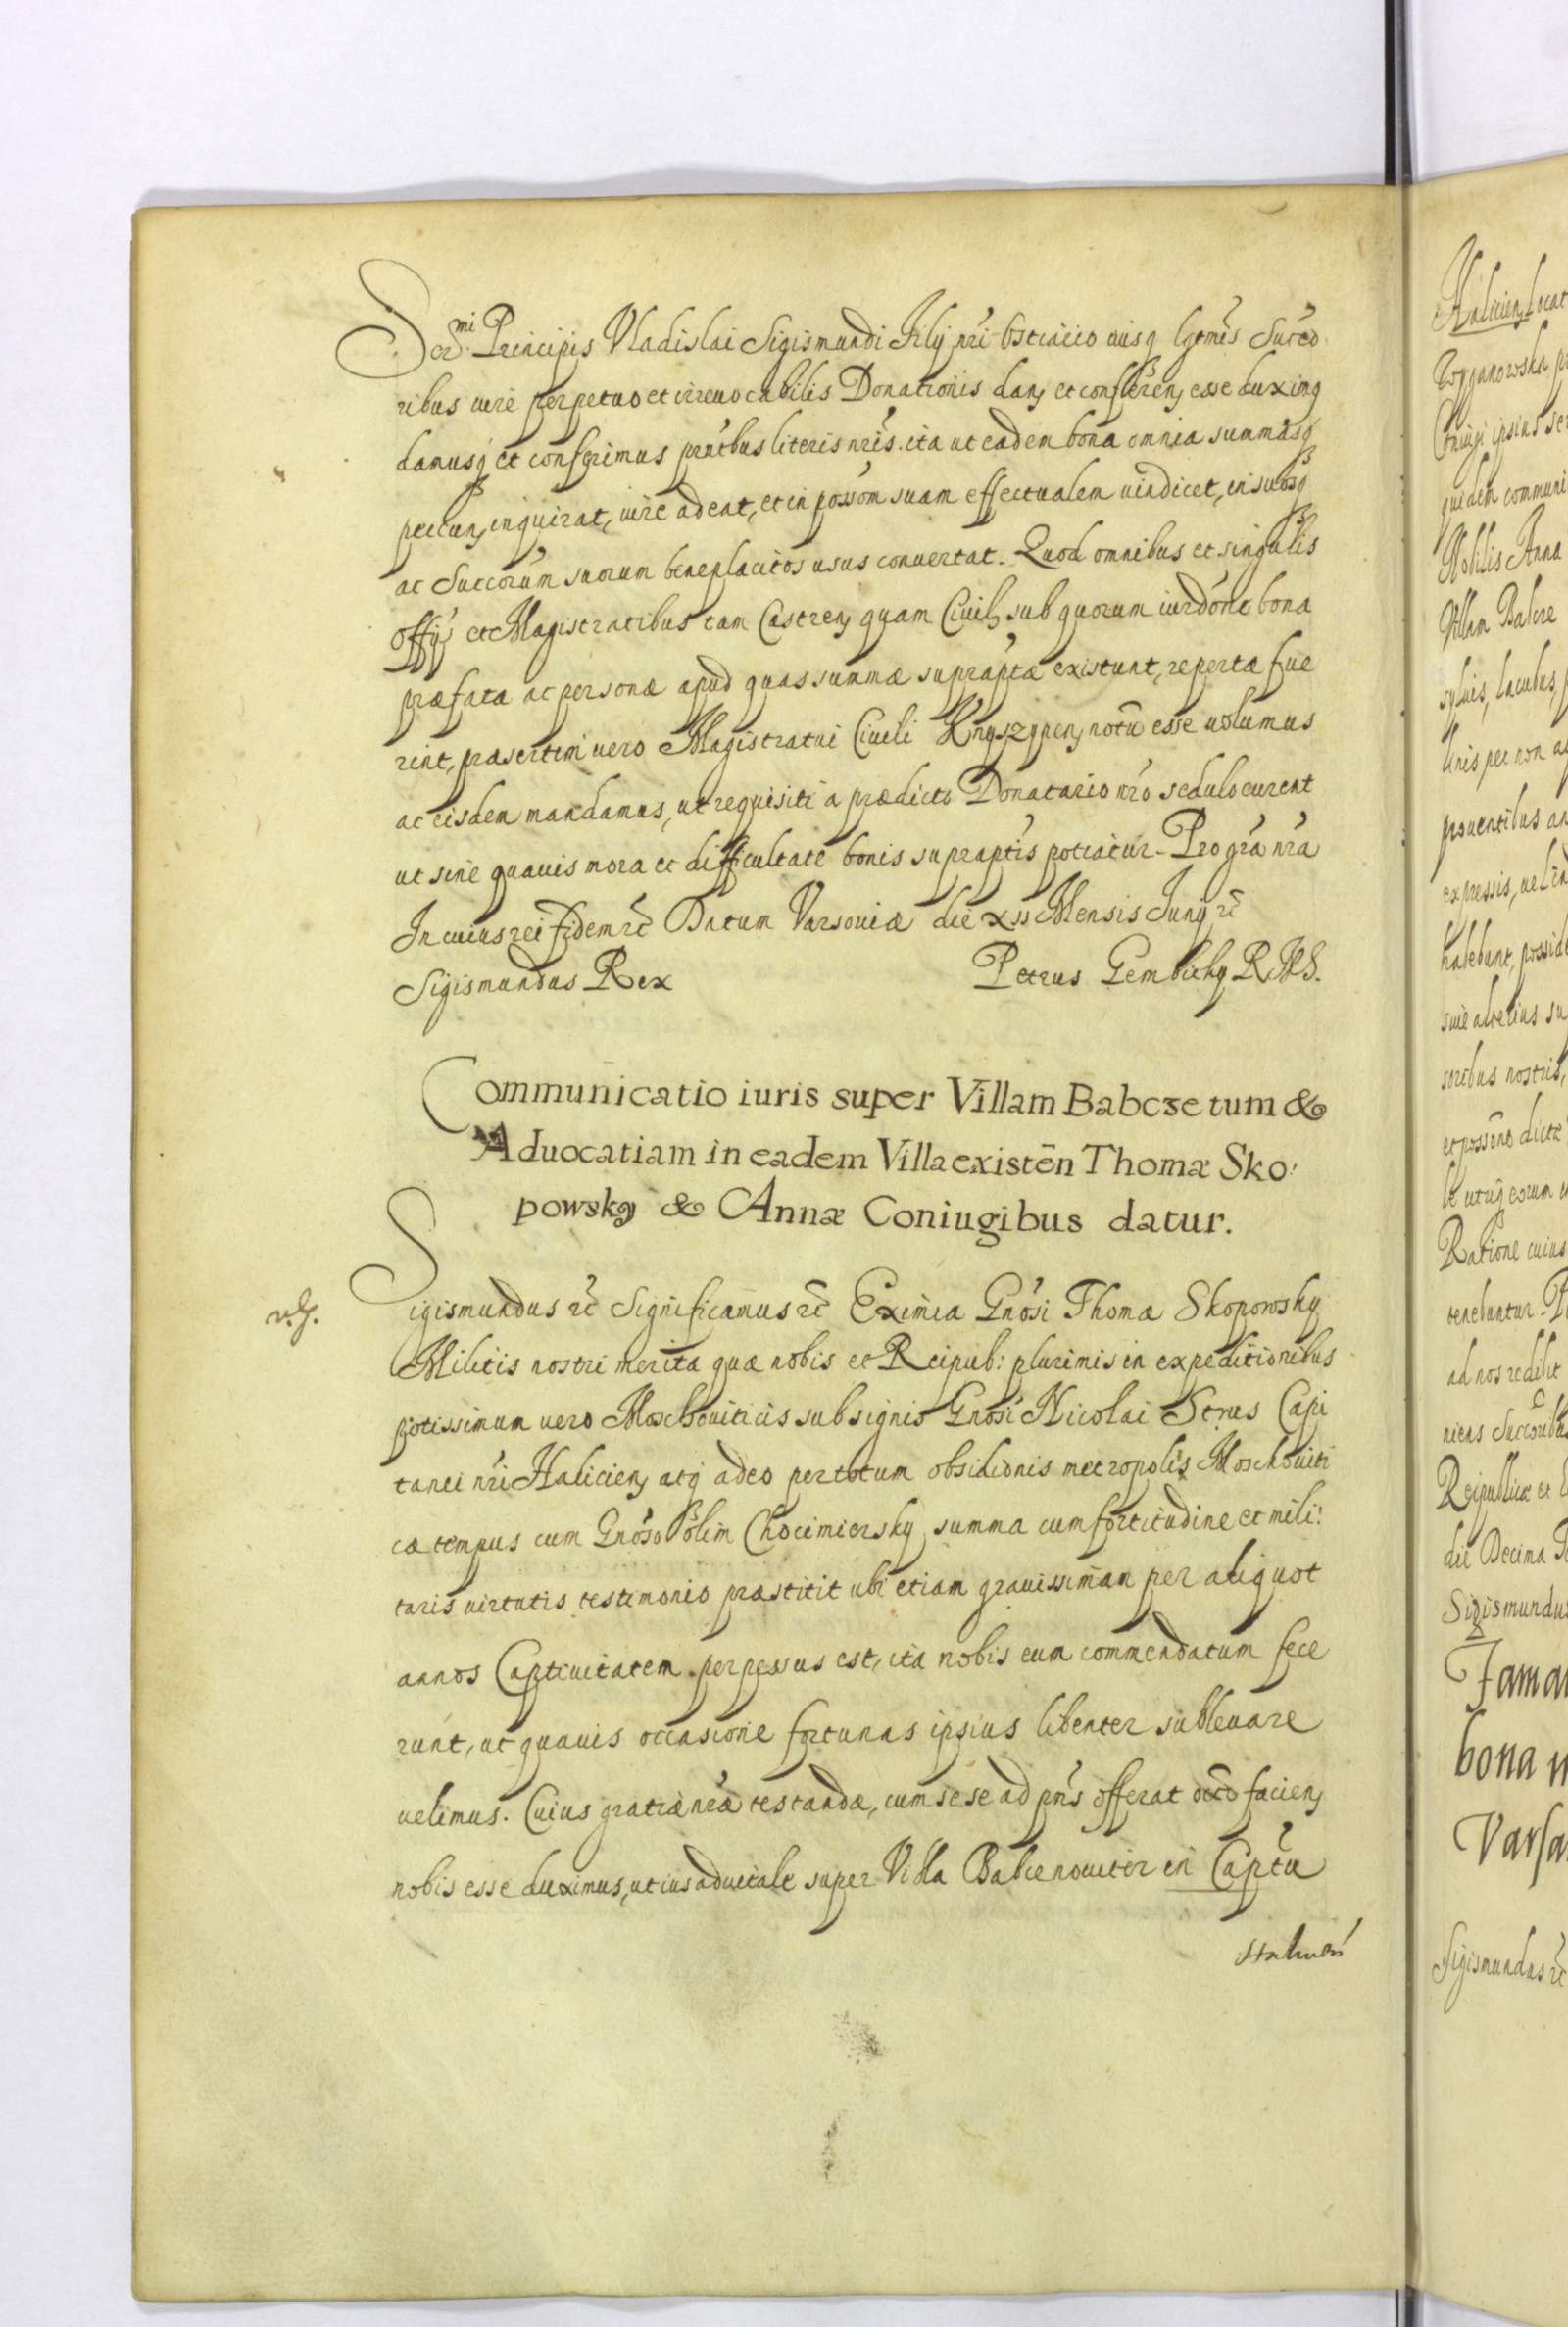 Ser.mi Principis Vladislai Sigismundi Filij nri Ostiario eiusq lgtmis Succo
ribus iure perpetuo et irreuocabilis Donationis dan, et conferen, esse duximq
damusq et conferimus pntibus literis nris. ita ut eadem bona omnia summasq
pecun, inquirat, iure adeat, et in possom suam effectualem uindicet, in suosq
ac Succorum suorum beneplacitos usus conuertat. Quod omnibus et singulis
Offijs et Magistratibus tam Castren, quam Ciuilz sub quorum iurdone bona
præfata ac personæ apud quas summæ supraptæ existunt, reperta fue
rint, præsertim uero Magistratui Ciuili Knyszynen, notū esse uolumus
ac eisdem mandamus, ut requisiti a prædicto Donatario nro sedulo curent
ut sine quauis mora et difficultate bonis supraptis potiatur. Pro gra nra
In cuius rei fidem rc Datum Varsouiæ die xii Mensis Junij rc
Sigismundus Rex Petrus Gembicky R. M. S.
Communicatio iuris super Villam Babcze tum &
Aduocatiam in eadem Villa existēn Thomæ Sko:
powsky & Annæ Coniugibus datur.
Sigismundus rc Significamus rc Eximia Gnosi Thomæ Skopowsky
Militis nostri merita quæ nobis et Reipub: plurimis in expeditionibus
potissimum uero Moschouiticis sub signis Gnosi Nicolai Strus Capi
tanei nri Halicien, atq adeo per totum obsidionis metropolis Moschouiti
cæ tempus cum Gnoso olim Chocimiersky summa cum fortitudine et mili:
taris uirtutis testimonio præstitit ubi etiam grauissimam per aliquot
annos Captiuitatem perpessus est, ita nobis eum commendatum fece
runt, ut quauis occasione fortunas ipsius libenter subleuare
uelimus. Cuius gratiæ nræ testandæ, cum sese ad pns offerat occo facien,
nobis esse duximus, ut ius aduitale super Villa Babcze nouiter in Captu
Halicien, Locat
Coniugi ipsius ser
quidem communi
Nobilis Anna
Villam Babcze
syluis, lacubus, p
prouentibus an
expressis, uel in
habebunt, possid
soribus nostris,
et possone dictæ
Ratione cuius
tenebuntur. P
ad nos redibit
Reipublicæ et
die Decima
Sigismundus
bona
Varsa
Sigismundus rc